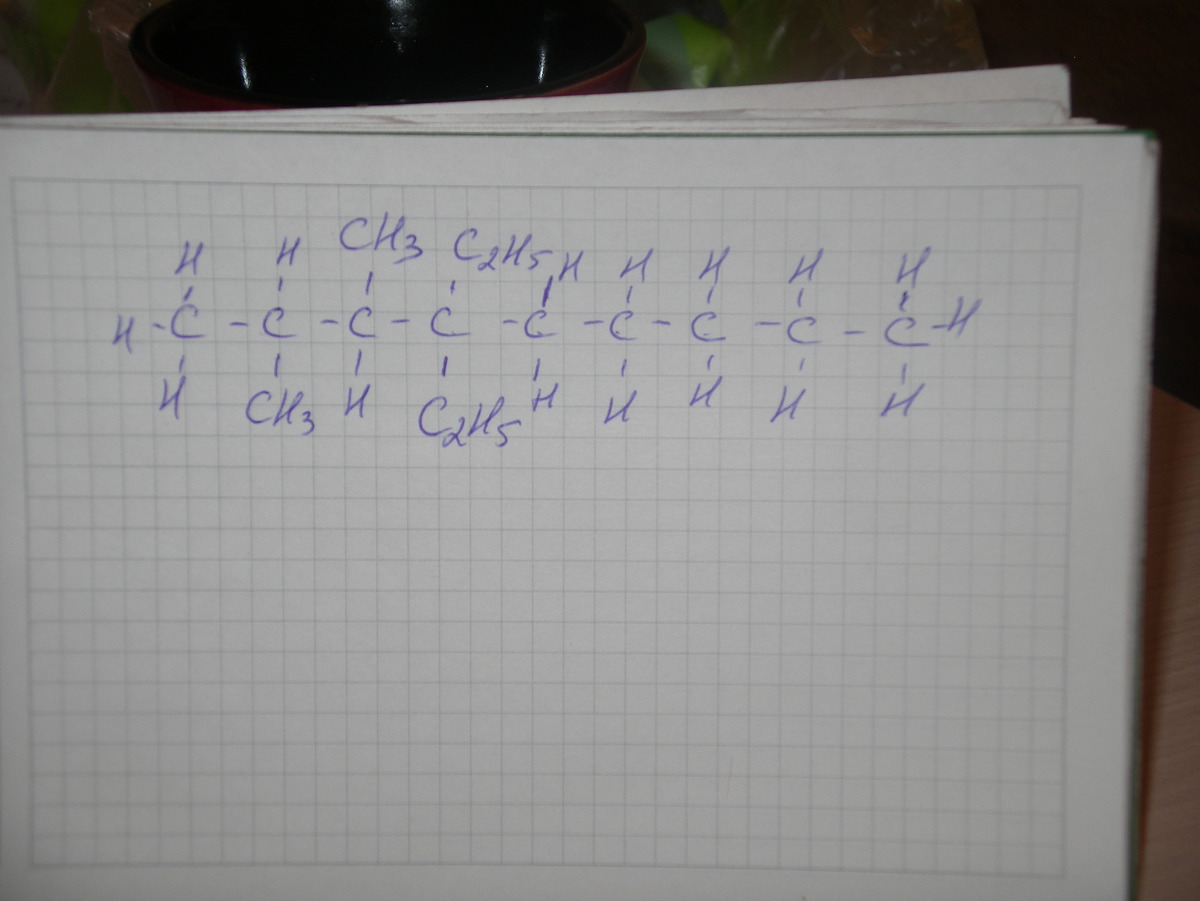 H H CH3 C2H5 H H H H H
H - C - C - C - C - C - C - C - C - C - H
H CH3 H C2H5 H H H H H